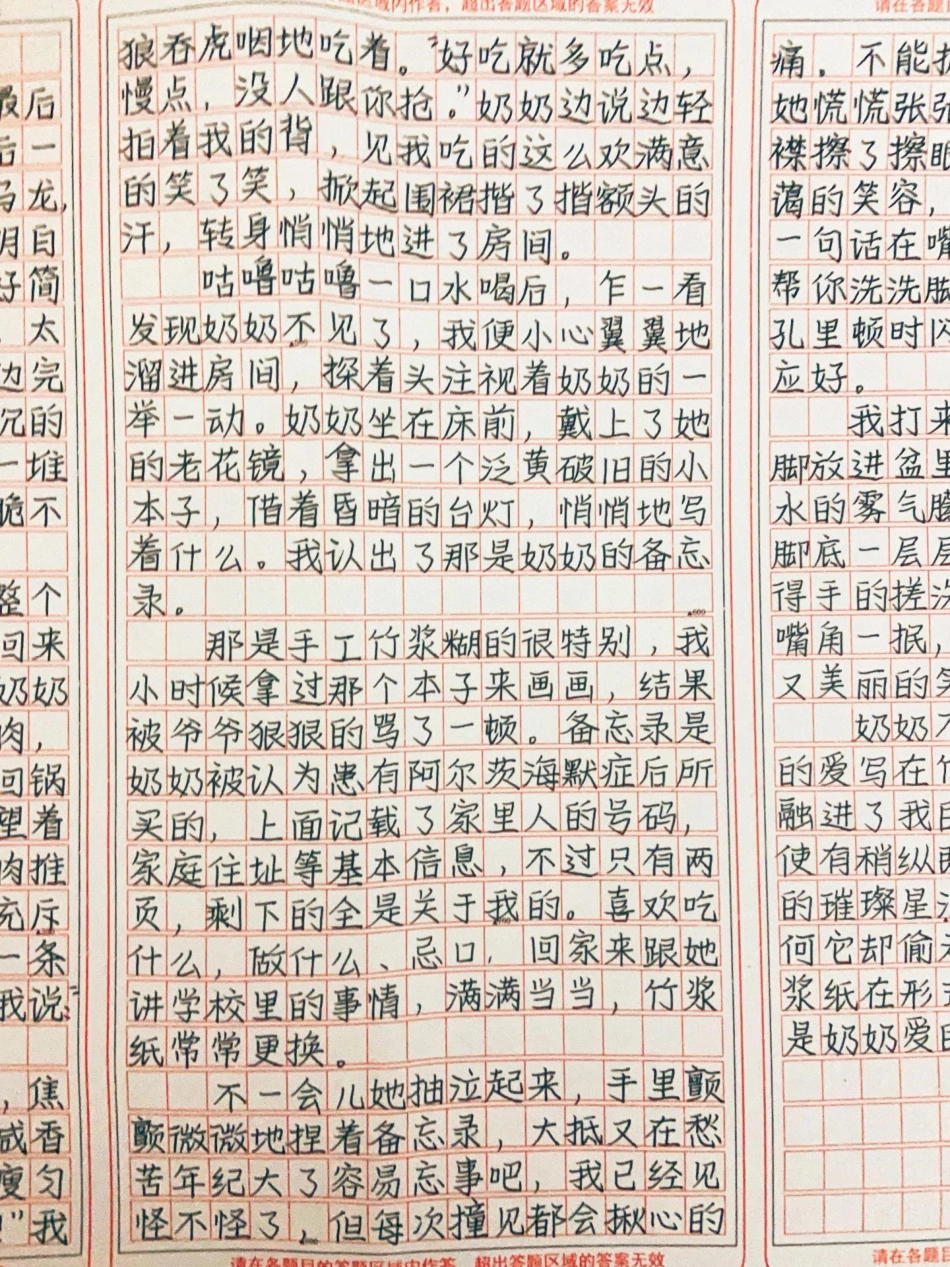 最后
后一
乌龙，
明白
好简
太
边完
沉的
一堆
脆不
整个
回来
奶奶
肉，
回锅
望着
肉推
充斥
一条
我说：“
，焦
咸香
瘦匀
！”我
区域内作答，超出答题区域的答案无效
狼吞虎咽地吃着。“好吃就多吃点，
慢点，没人跟你抢。”奶奶边说边轻
拍着我的背，见我吃的这么欢满意
的笑了笑，掀起围裙揩了揩额头的
汗，转身悄悄地进了房间。
咕噜咕噜一口水喝后，乍一看
发现奶奶不见了，我便小心翼翼地
溜进房间，探着头注视着奶奶的一
举一动。奶奶坐在床前，戴上了她
的老花镜，拿出一个泛黄破旧的小
本子，借着昏暗的台灯，悄悄地写
着什么。我认出了那是奶奶的备忘
录。
▲600
那是手工竹浆糊的很特别，我
小时候拿过那个本子来画画，结果
被爷爷狠狠的骂了一顿。备忘录是
奶奶被认为患有阿尔茨海默症后所
买的，上面记载了家里人的号码，
家庭住址等基本信息，不过只有两
页，剩下的全是关于我的。喜欢吃
什么，做什么、忌口，回家来跟她
讲学校里的事情，满满当当，竹浆
纸常常更换。
不一会儿她抽泣起来，手里颤
颤微微地捏着备忘录，大抵又在愁
苦年纪大了容易忘事吧，我已经见
怪不怪了，但每次撞见都会揪心的
请在各题目的答题区域内作答，超出答题区域的答案无效
请在各题目
痛．不能
她慌慌张张
襟擦了擦眼
蔼的笑容，
一句话在嘴
帮你洗洗脚
孔里顿时闪
应好。
我打来
脚放进盆里
水的雾气腾
脚底一层层
得手的搓洗
嘴角一抿，
又美丽的笑
奶奶不
的爱写在竹
融进了我
使有稍纵即
的璀璨星
何它却偷
浆纸在形
是奶奶爱
请在各题目